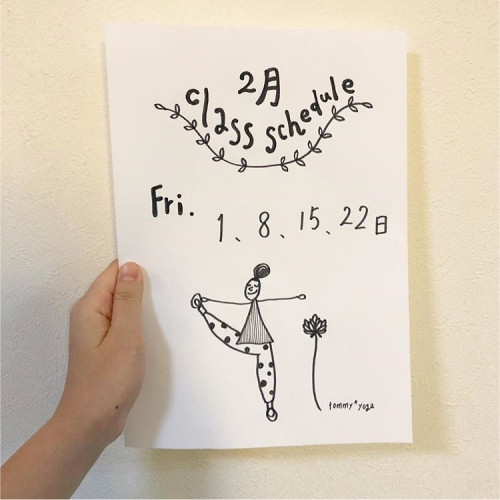 2月
class schedule
Fri. 1、8、15、22日
tommy*yoga